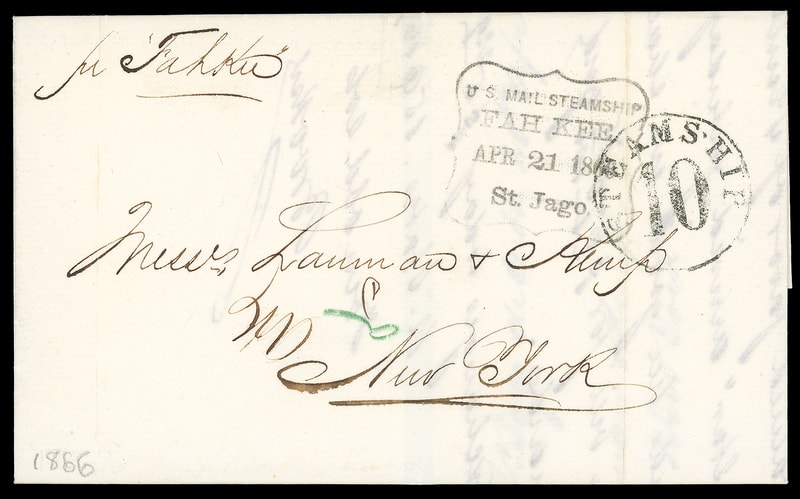 pr "Fah Kee"
U. S. MAIL STEAMSHIP
FAH KEE
APR 21 1866
St. Jago
STEAMSHIP
10
Messrs Lanman & Kemp
New York
1866